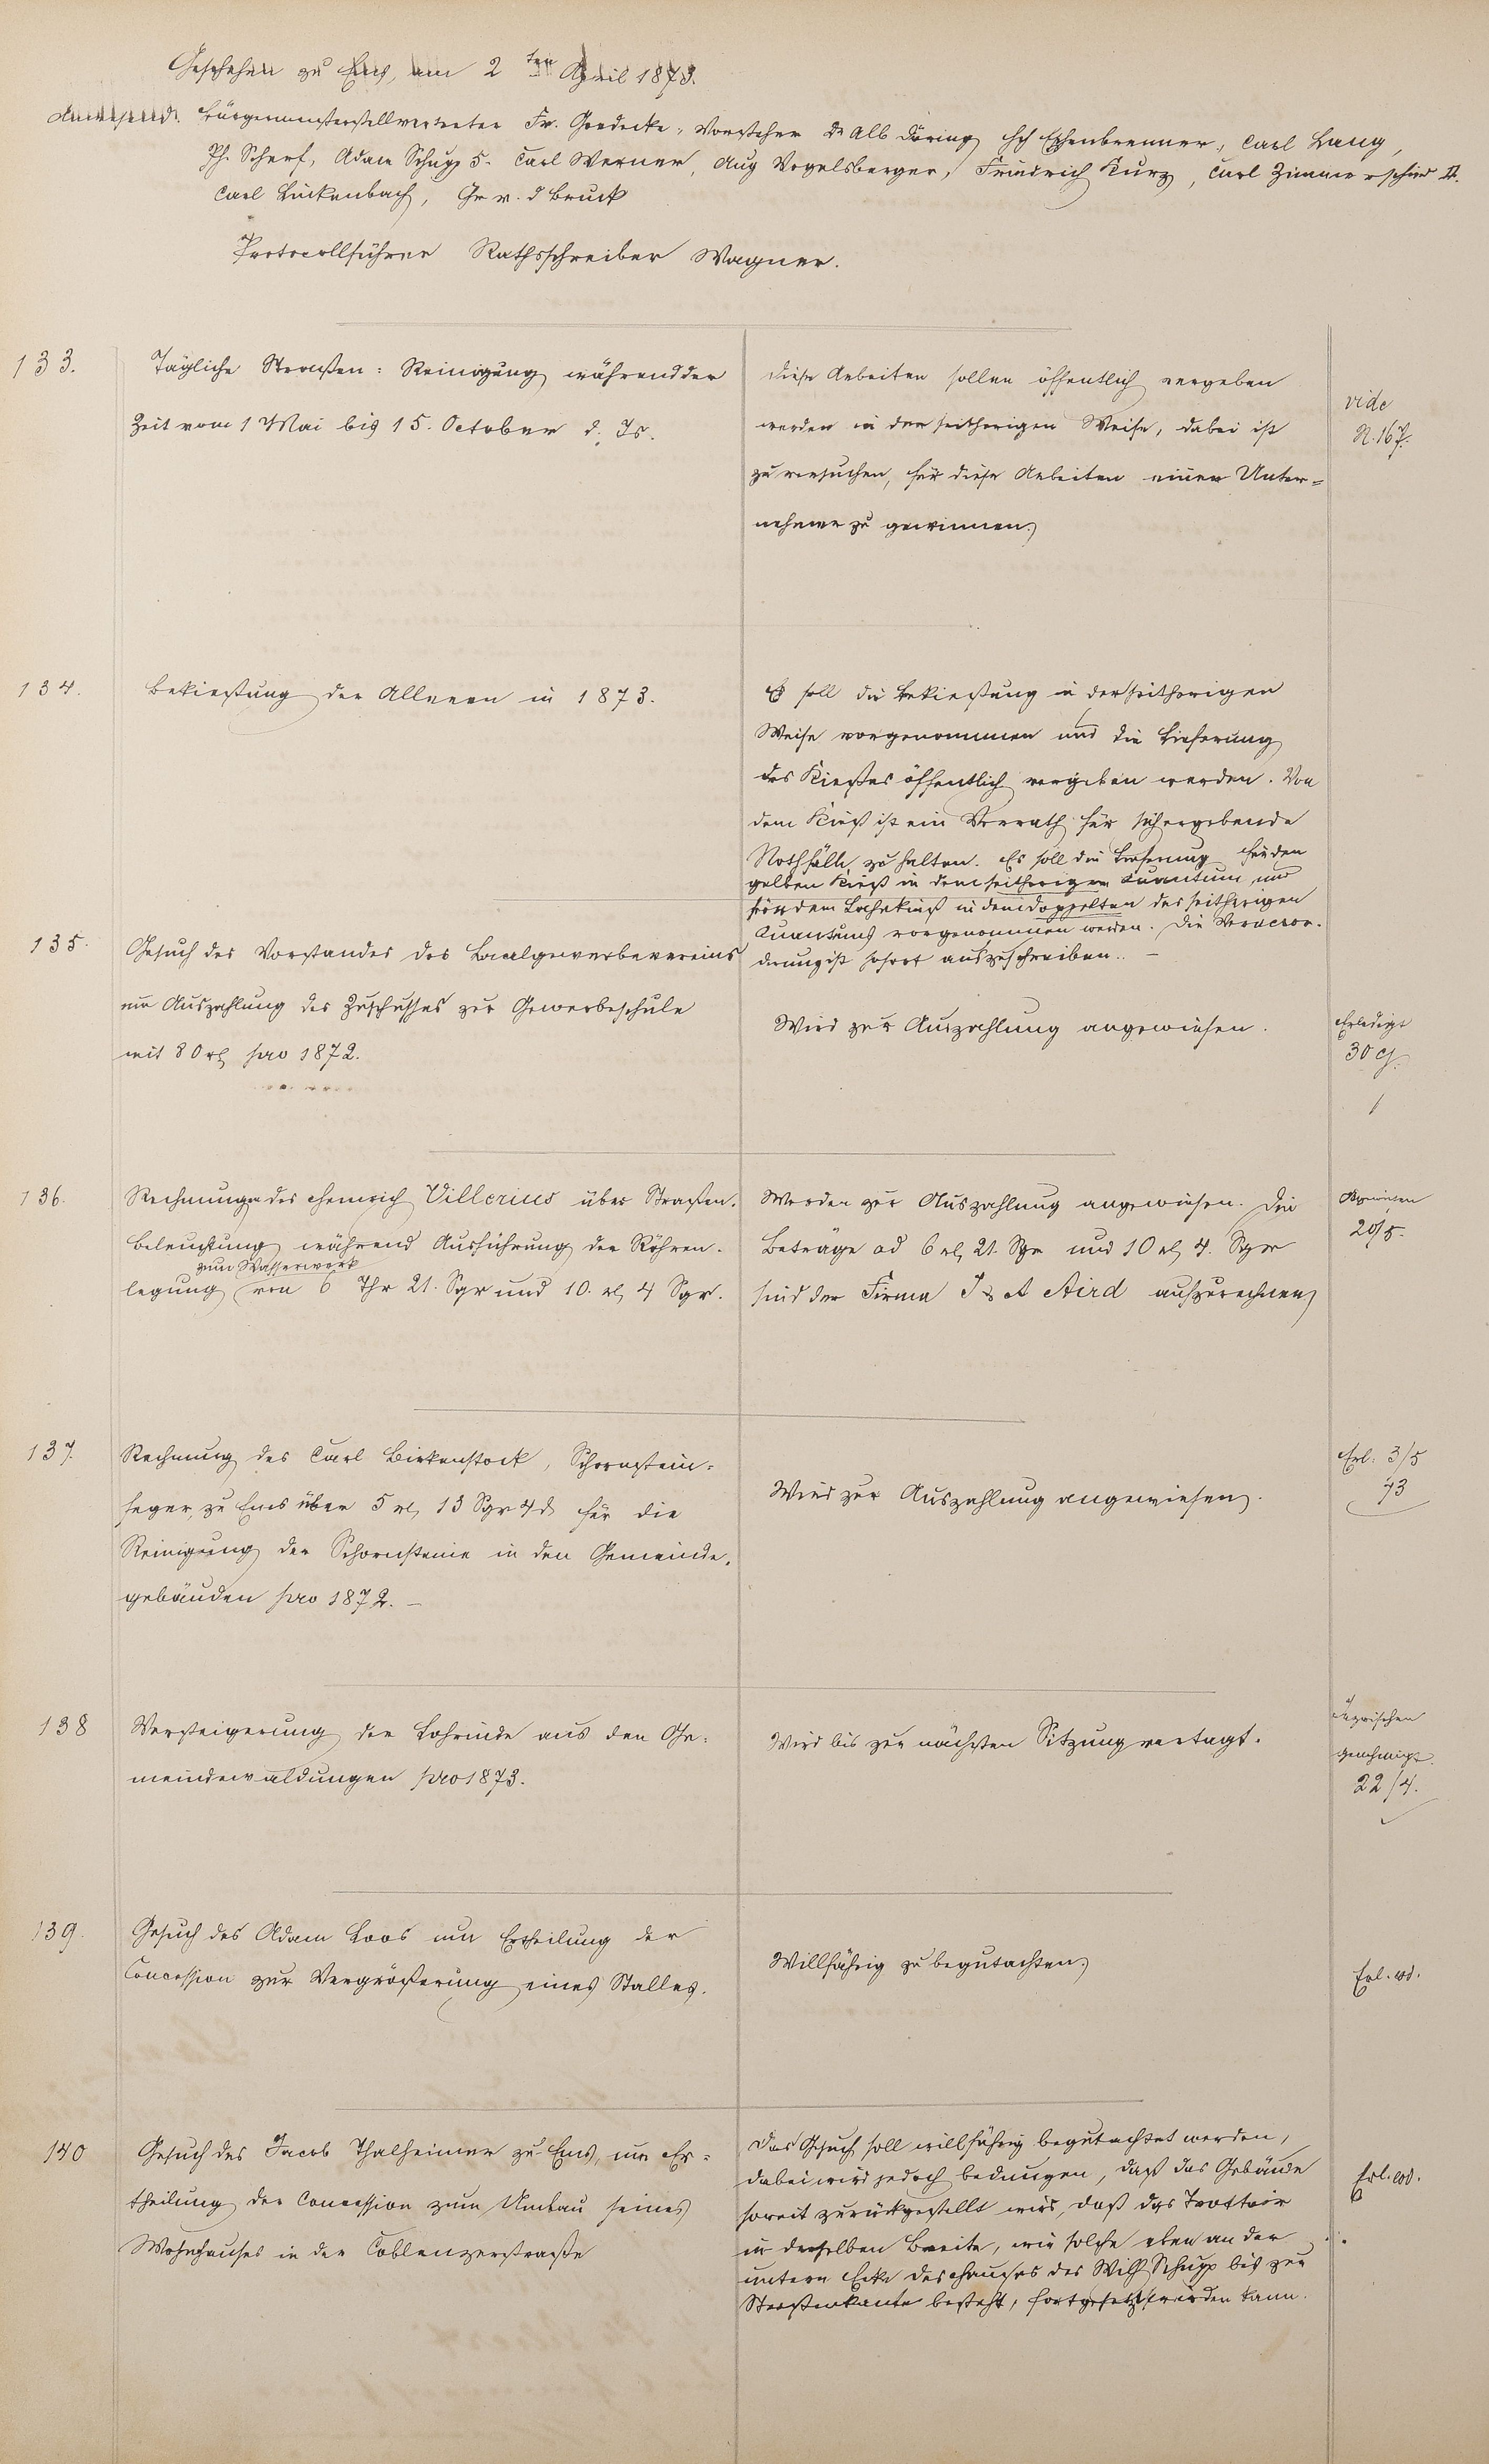 Geschehen zu Ems, am 2ten April 1873.
Anwesend. Bürgermeisterstellvertreter Fr. Goedecke, Vorsteher Dr Alb Döring, Hch Eschenbrenner, Carl Lang,
Ph. Scherf, Adam Schupp 5. Carl Werner, Aug Vogelsberger, Friedrich Kurz, Carl Zimmerschied II.
Carl Linkenbach, Gr v. d Bruck
Protocollführer Rathsschreiber Wagner.
133.
Tägliche Straßen-Reinigung während der
Zeit vom 1 Mai bis 15. October d. Js.
Diese Arbeiten sollen öffentlich vergeben
werden in der seitherigen Weise, dabei ist
zu versuchen, für diese Arbeiten einen Unter=
nehmer zu gewinnen.
vide
N. 167.
134.
Bekießung der Alleen in 1873.
Es soll die Bekießung in der seitherigen
Weise vorgenommen und die Lieferung
des Kießes öffentlich vergeben werden. Von
dem Kieß ist ein Vorrath für sich ergebende
Nothfälle zu halten. Es soll die Lieferung für den
gelben Kieß in dem seitherigen Quantum und
für den Lahnkieß in dem doppelten des seitherigen
Quantums vorgenommen werden. Die Veraccor-
dirung ist sofort auszuschreiben. –
135.
Gesuch des Vorstandes des Localgewerbevereins
um Auszahlung des Zuschusses zur Gewerbeschule
mit 80 rl pro 1872.
Wird zur Auszahlung angewiesen.
Erledigt
30
136.
Rechnungen des Heinrich Villerius über Straßen-
beleuchtung während Ausführung der Röhren-
zum Wasserwerk
legung von 6 Thr 21. Sgr und 10. rl, 4 Sgr.
Werden zur Auszahlung angewiesen. Die
Beträge ad 6 rl, 21. Sgr und 10 rl, 4. Sgr
sind der Firma J & A Aird aufzurechnen
Angewiesen
20/5.
137.
Rechnung des Carl Birkenstock, Schornstein-
feger, zu Ems über 5 rl, 13 Sgr 4 d für die
Reinigung der Schornsteine in den Gemeinde-
gebäuden pro 1872. –
Wird zur Auszahlung angewiesen.
Erl. 3/5
73
138
Versteigerung der Lohrinde aus den Ge-
meindewaldungen pro 1873.
Wird bis zur nächsten Sitzung vertagt.
Inzwischen
genehmigt.
22/4.
139.
Gesuch des Adam Loos um Ertheilung der
Concession zur Vergrößerung eines Stalles.
Willfährig zu begutachten.
Erl. eod.
140
Gesuch des Jacob Thalheimer zu Ems, um Er-
theilung der Concession zum Umbau seines
Wohnhauses in der Coblenzerstraße
Das Gesuch soll willfährig begutachtet werden,
dabei wird jedoch bedungen, daß das Gebäude
soweit zurückgestellt wird, daß das Trottoir
in derselben Breite, wie solche oben an der
untern Ecke des Hauses des Wilh Schupp bis zur
Straßenkante besteht, fortgesetzt werden kann.
Erl. eod.